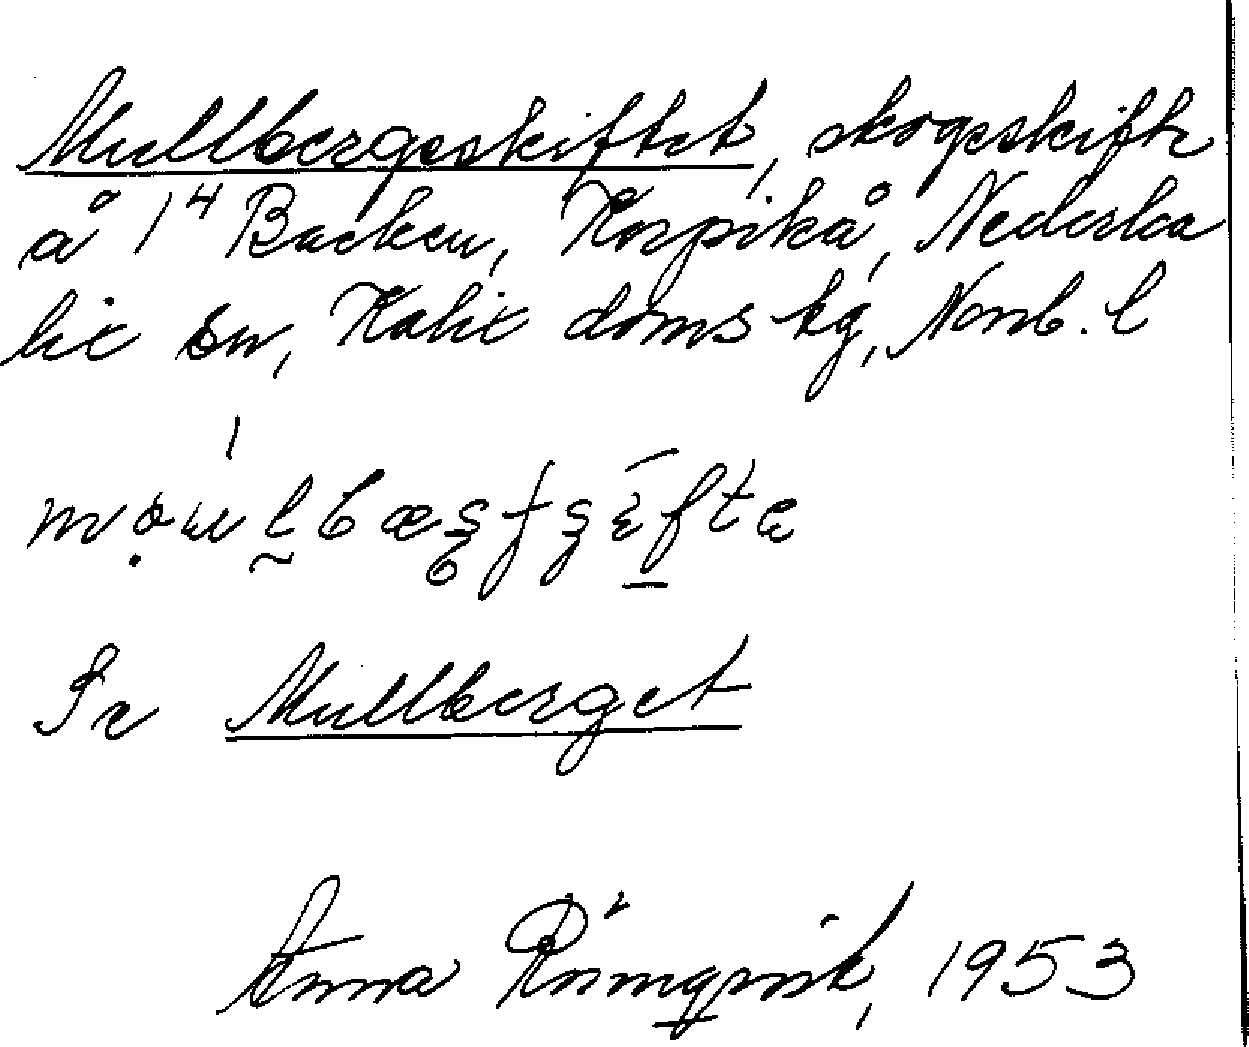 Mullbergsskiftet, skogsskifte
å 1⁴ Backen, Korpikå, Nederka
lix sn, Kalix doms kg, Norrb. l
Se Mullberget
Anna Rönnqvist, 1953